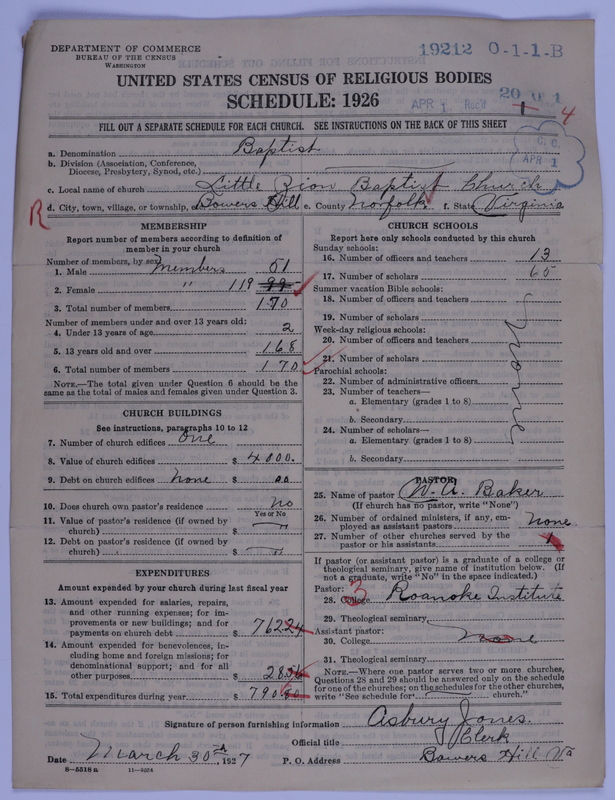 DEPARTMENT OF COMMERCE
BUREAU OF THE CENSUS
WASHINGTON
19212 O-1-1-B
UNITED STATES CENSUS OF RELIGIOUS BODIES
SCHEDULE: 1926
APR 1 Rec'd
4
FILL OUT A SEPARATE SCHEDULE FOR EACH CHURCH. SEE INSTRUCTIONS ON THE BACK OF THIS SHEET
C. C.
APR 1
a. Denomination Baptist
b. Division (Association, Conference,
Diocese, Presbytery, Synod, etc.)
c. Local name of church Little Zion Baptist Church
R
d. City, town, village, or township, Bowers Hill e. County Norfolk f. State Virginia
MEMBERSHIP
Report number of members according to definition of
member in your church
Number of members, by sex:
1. Male Members 51
2. Female " 119 99
3. Total number of members 170
Number of members under and over 13 years old:
4. Under 13 years of age 2
5. 13 years old and over 168
6. Total number of members 170
NOTE.—The total given under Question 6 should be the
same as the total of males and females given under Question 3.
CHURCH BUILDINGS
See instructions, paragraphs 10 to 12
7. Number of church edifices One
8. Value of church edifices $ 4000.
9. Debt on church edifices None $ 00
10. Does church own pastor's residence No
Yes or No
11. Value of pastor's residence (if owned by
church) $
12. Debt on pastor's residence (if owned by
church) $
EXPENDITURES
Amount expended by your church during last fiscal year
13. Amount expended for salaries, repairs,
and other running expenses; for im-
provements or new buildings; and for
payments on church debt $ 76224
14. Amount expended for benevolences, in-
cluding home and foreign missions; for
denominational support; and for all
other purposes $ 2856
15. Total expenditures during year $ 79080
CHURCH SCHOOLS
Report here only schools conducted by this church
Sunday schools:
16. Number of officers and teachers 13
17. Number of scholars 65
Summer vacation Bible schools:
18. Number of officers and teachers
19. Number of scholars
Week-day religious schools:
20. Number of officers and teachers
21. Number of scholars
Parochial schools:
22. Number of administrative officers
23. Number of teachers—
a. Elementary (grades 1 to 8)
b. Secondary
24. Number of scholars—
a. Elementary (grades 1 to 8)
b. Secondary
None
PASTOR
25. Name of pastor W. A. Baker
(If church has no pastor, write "None")
26. Number of ordained ministers, if any, em-
ployed as assistant pastors None
27. Number of other churches served by the
pastor or his assistants 1
If pastor (or assistant pastor) is a graduate of a college or
theological seminary, give name of institution below. (If
not a graduate, write "No" in the space indicated.)
Pastor: 3
28. College Roanoke Institute
29. Theological seminary
Assistant pastor:
30. College None
31. Theological seminary
NOTE.—Where one pastor serves two or more churches,
Questions 28 and 29 should be answered only on the schedule
for one of the churches; on the schedules for the other churches,
write "See schedule for church."
Signature of person furnishing information Asbury Jones.
Official title Clerk
Date March 30th, 1927 P. O. Address Bowers Hill Va
8-5518 a